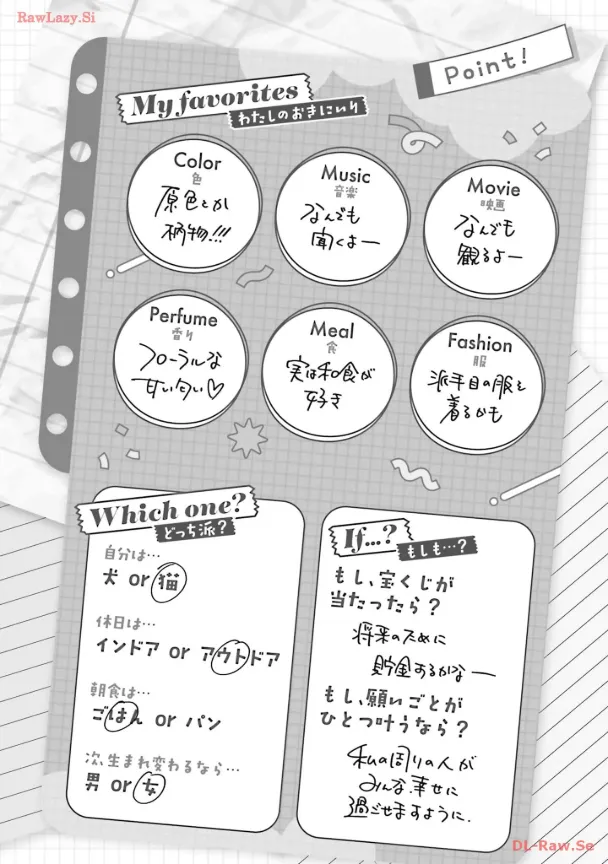 RawLazy.Si
Point!
My favorites
わたしのおきにいり
Color
色
原色とか
柄物!!!
Music
音楽
なんでも
聞くよー
Movie
映画
なんでも
観るよー
Perfume
香り
フローラルな
甘い匂い♡
Meal
食
実は和食が
好き
Fashion
服
派手目の服を
着るかも
Which one?
どっち派?
自分は…
犬 or 猫
休日は…
インドア or アウトドア
朝食は…
ごはん or パン
次、生まれ変わるなら…
男 or 女
If...?
もしも…?
もし、宝くじが
当たったら?
将来のために
貯金するかなー
もし、願いごとが
ひとつ叶うなら?
私の周りの人が
みんな幸せに
過ごせますように.
DL-Raw.Se